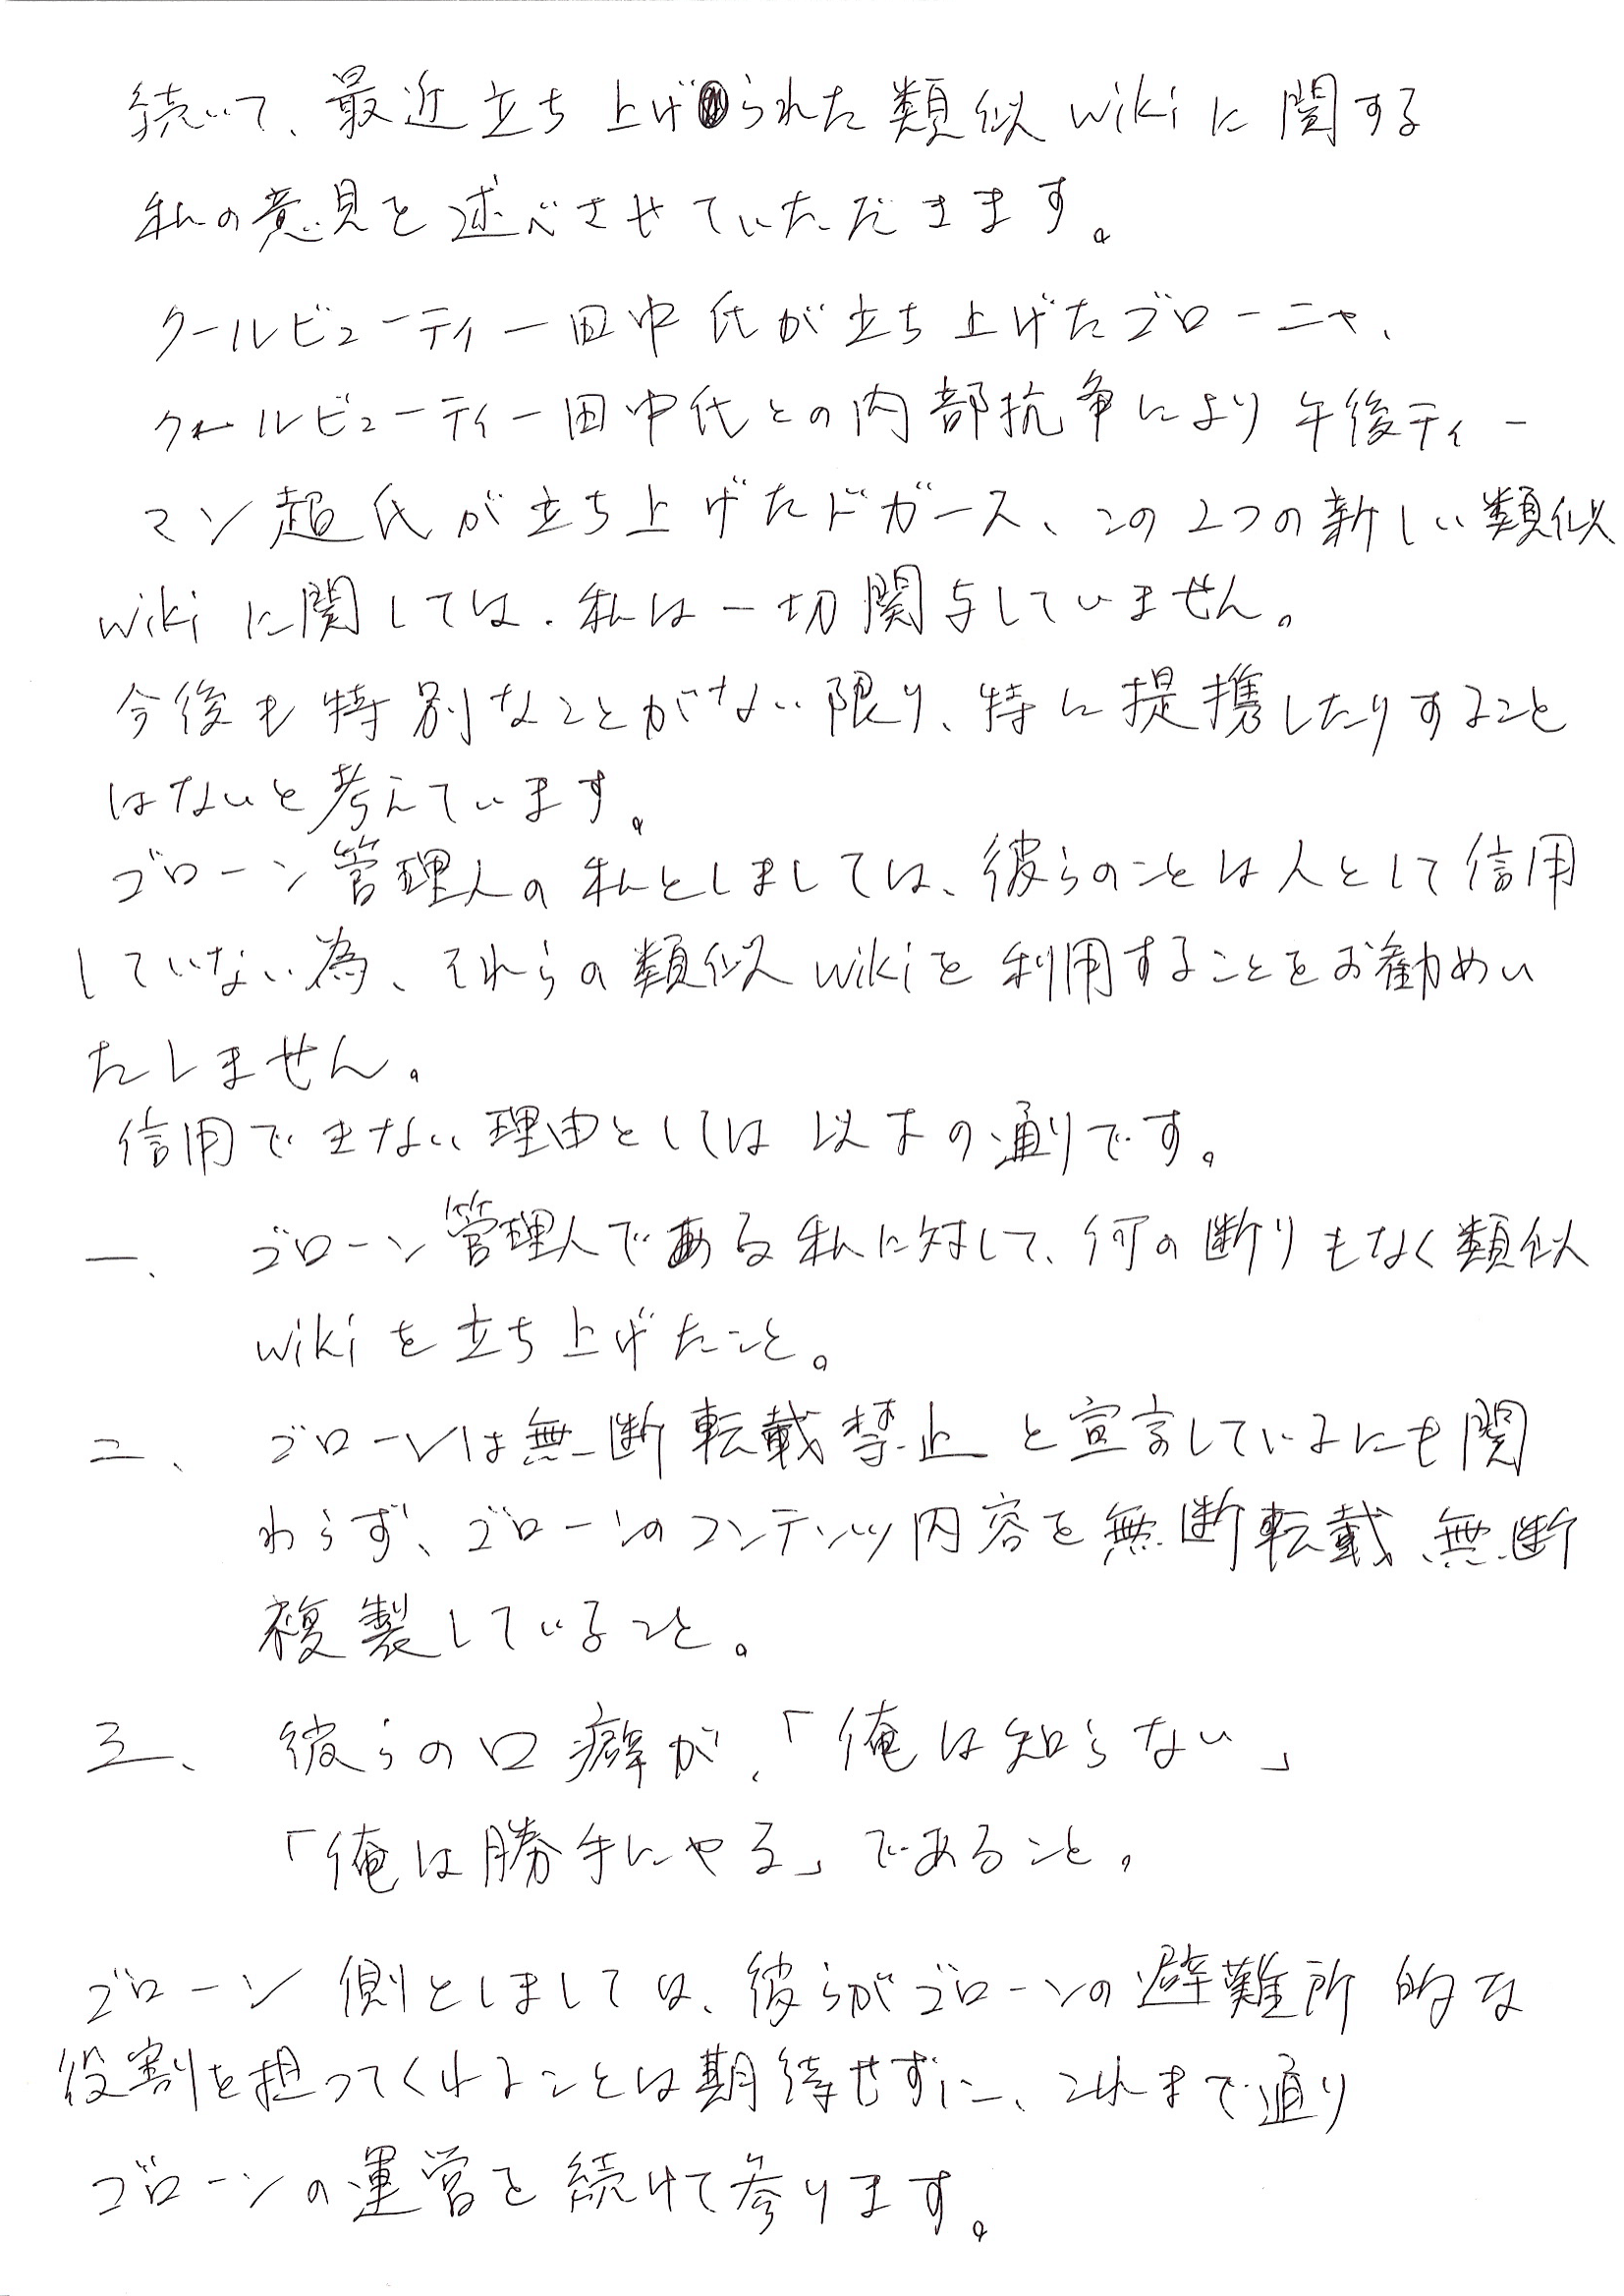 続いて、最近立ち上げられた類似wikiに関する
私の意見を述べさせていただきます。
クールビューティー田中氏が立ち上げたゴローニャ、
クールビューティー田中氏との内部抗争により午後ティー
マン超氏が立ち上げたドガース、この2つの新しい類似
wikiに関しては、私は一切関与していません。
今後も特別なことがない限り、特に提携したりすること
はないと考えています。
ゴローン管理人の私としましては、彼らのことは人として信用
していない為、それらの類似wikiを利用することをお勧めい
たしません。
信用できない理由としては以下の通りです。
一、ゴローン管理人である私に対して、何の断りもなく類似
wikiを立ち上げたこと。
二、ゴローンは無断転載禁止と宣言しているにも関
わらず、ゴローンのコンテンツ内容を無断転載、無断
複製していること。
三、彼らの口癖が、「俺は知らない」
「俺は勝手にやる」であること。
ゴローン側としましては、彼らがゴローンの避難所的な
役割を担ってくれることは期待せずに、これまで通り
ゴローンの運営を続けて参ります。